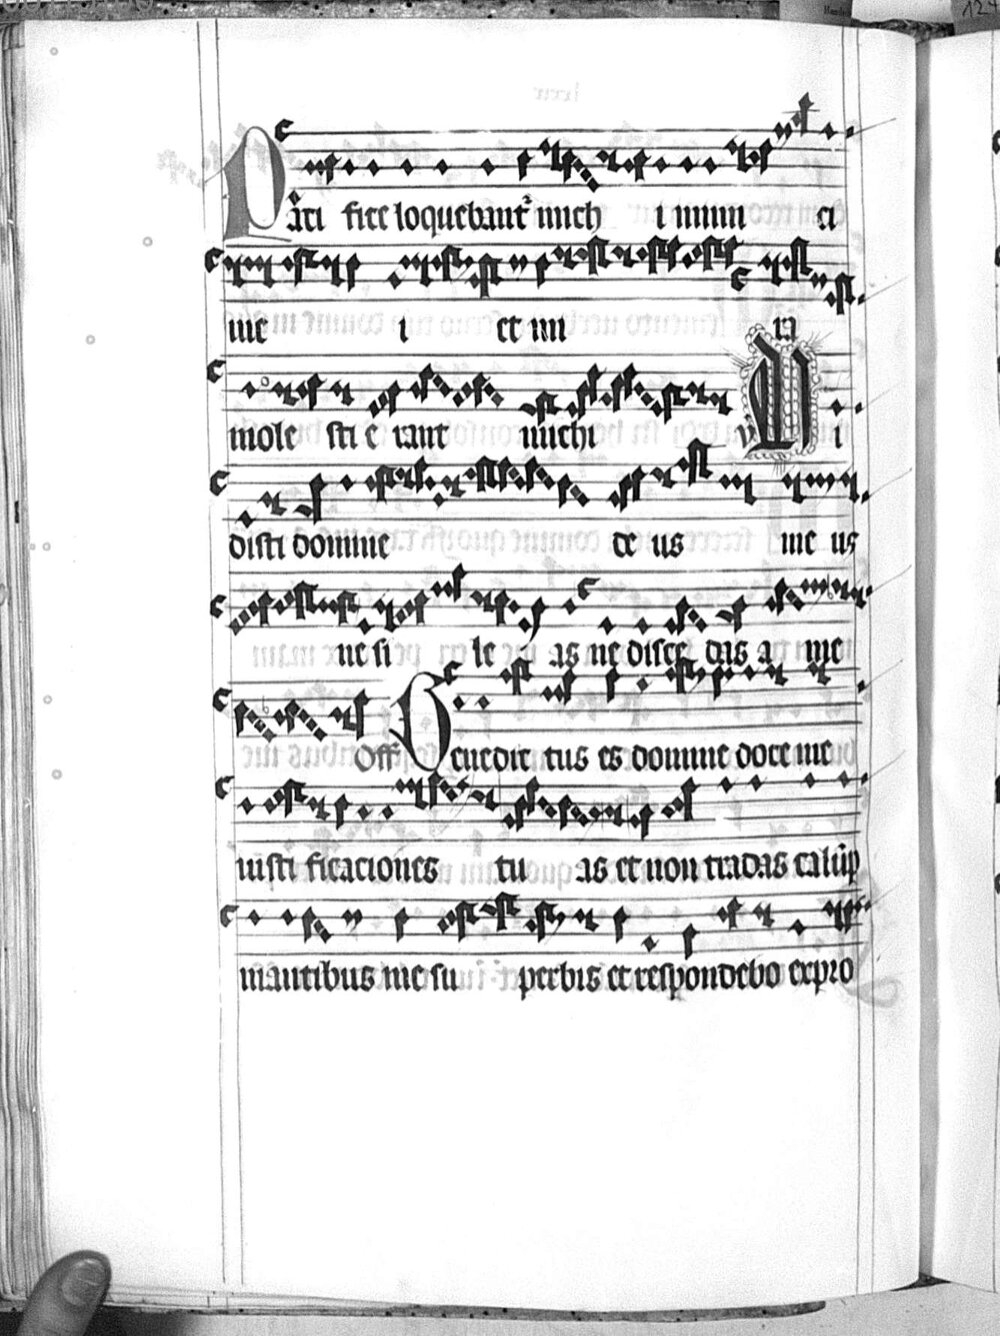 Paci fice loquebant² michi i nimi ci
me i et in ira
mole sti e rant michi v̓ Vi
disti domine de us me us
ne si le as ne disce das a me
Off Benedic tus es domine doce me
iusti ficaciones tu as et non tradas calūp
niantibus me su perbis et respondebo expro